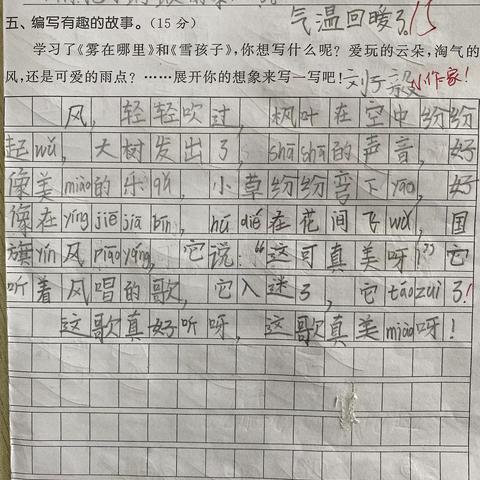 气温回暖了15
五、编写有趣的故事。（15 分）
学习了《雾在哪里》和《雪孩子》，你想写什么呢？爱玩的云朵，淘气的
风，还是可爱的雨点？……展开你的想象来写一写吧！小作家！
风，轻轻吹过，枫叶在空中纷纷
起wǔ，大树发出了，shāshā的声音，好
像美miào的乐qǔ，小草纷纷弯下yāo，好
像在yíngjiējiābīn，húdié在花间飞wǔ，国
旗yín风piāoyáng，它说：“这可真美呀！”它
听着风唱的歌，它入迷了，它táozuì了！
这歌真好听呀，这歌真美miào呀！